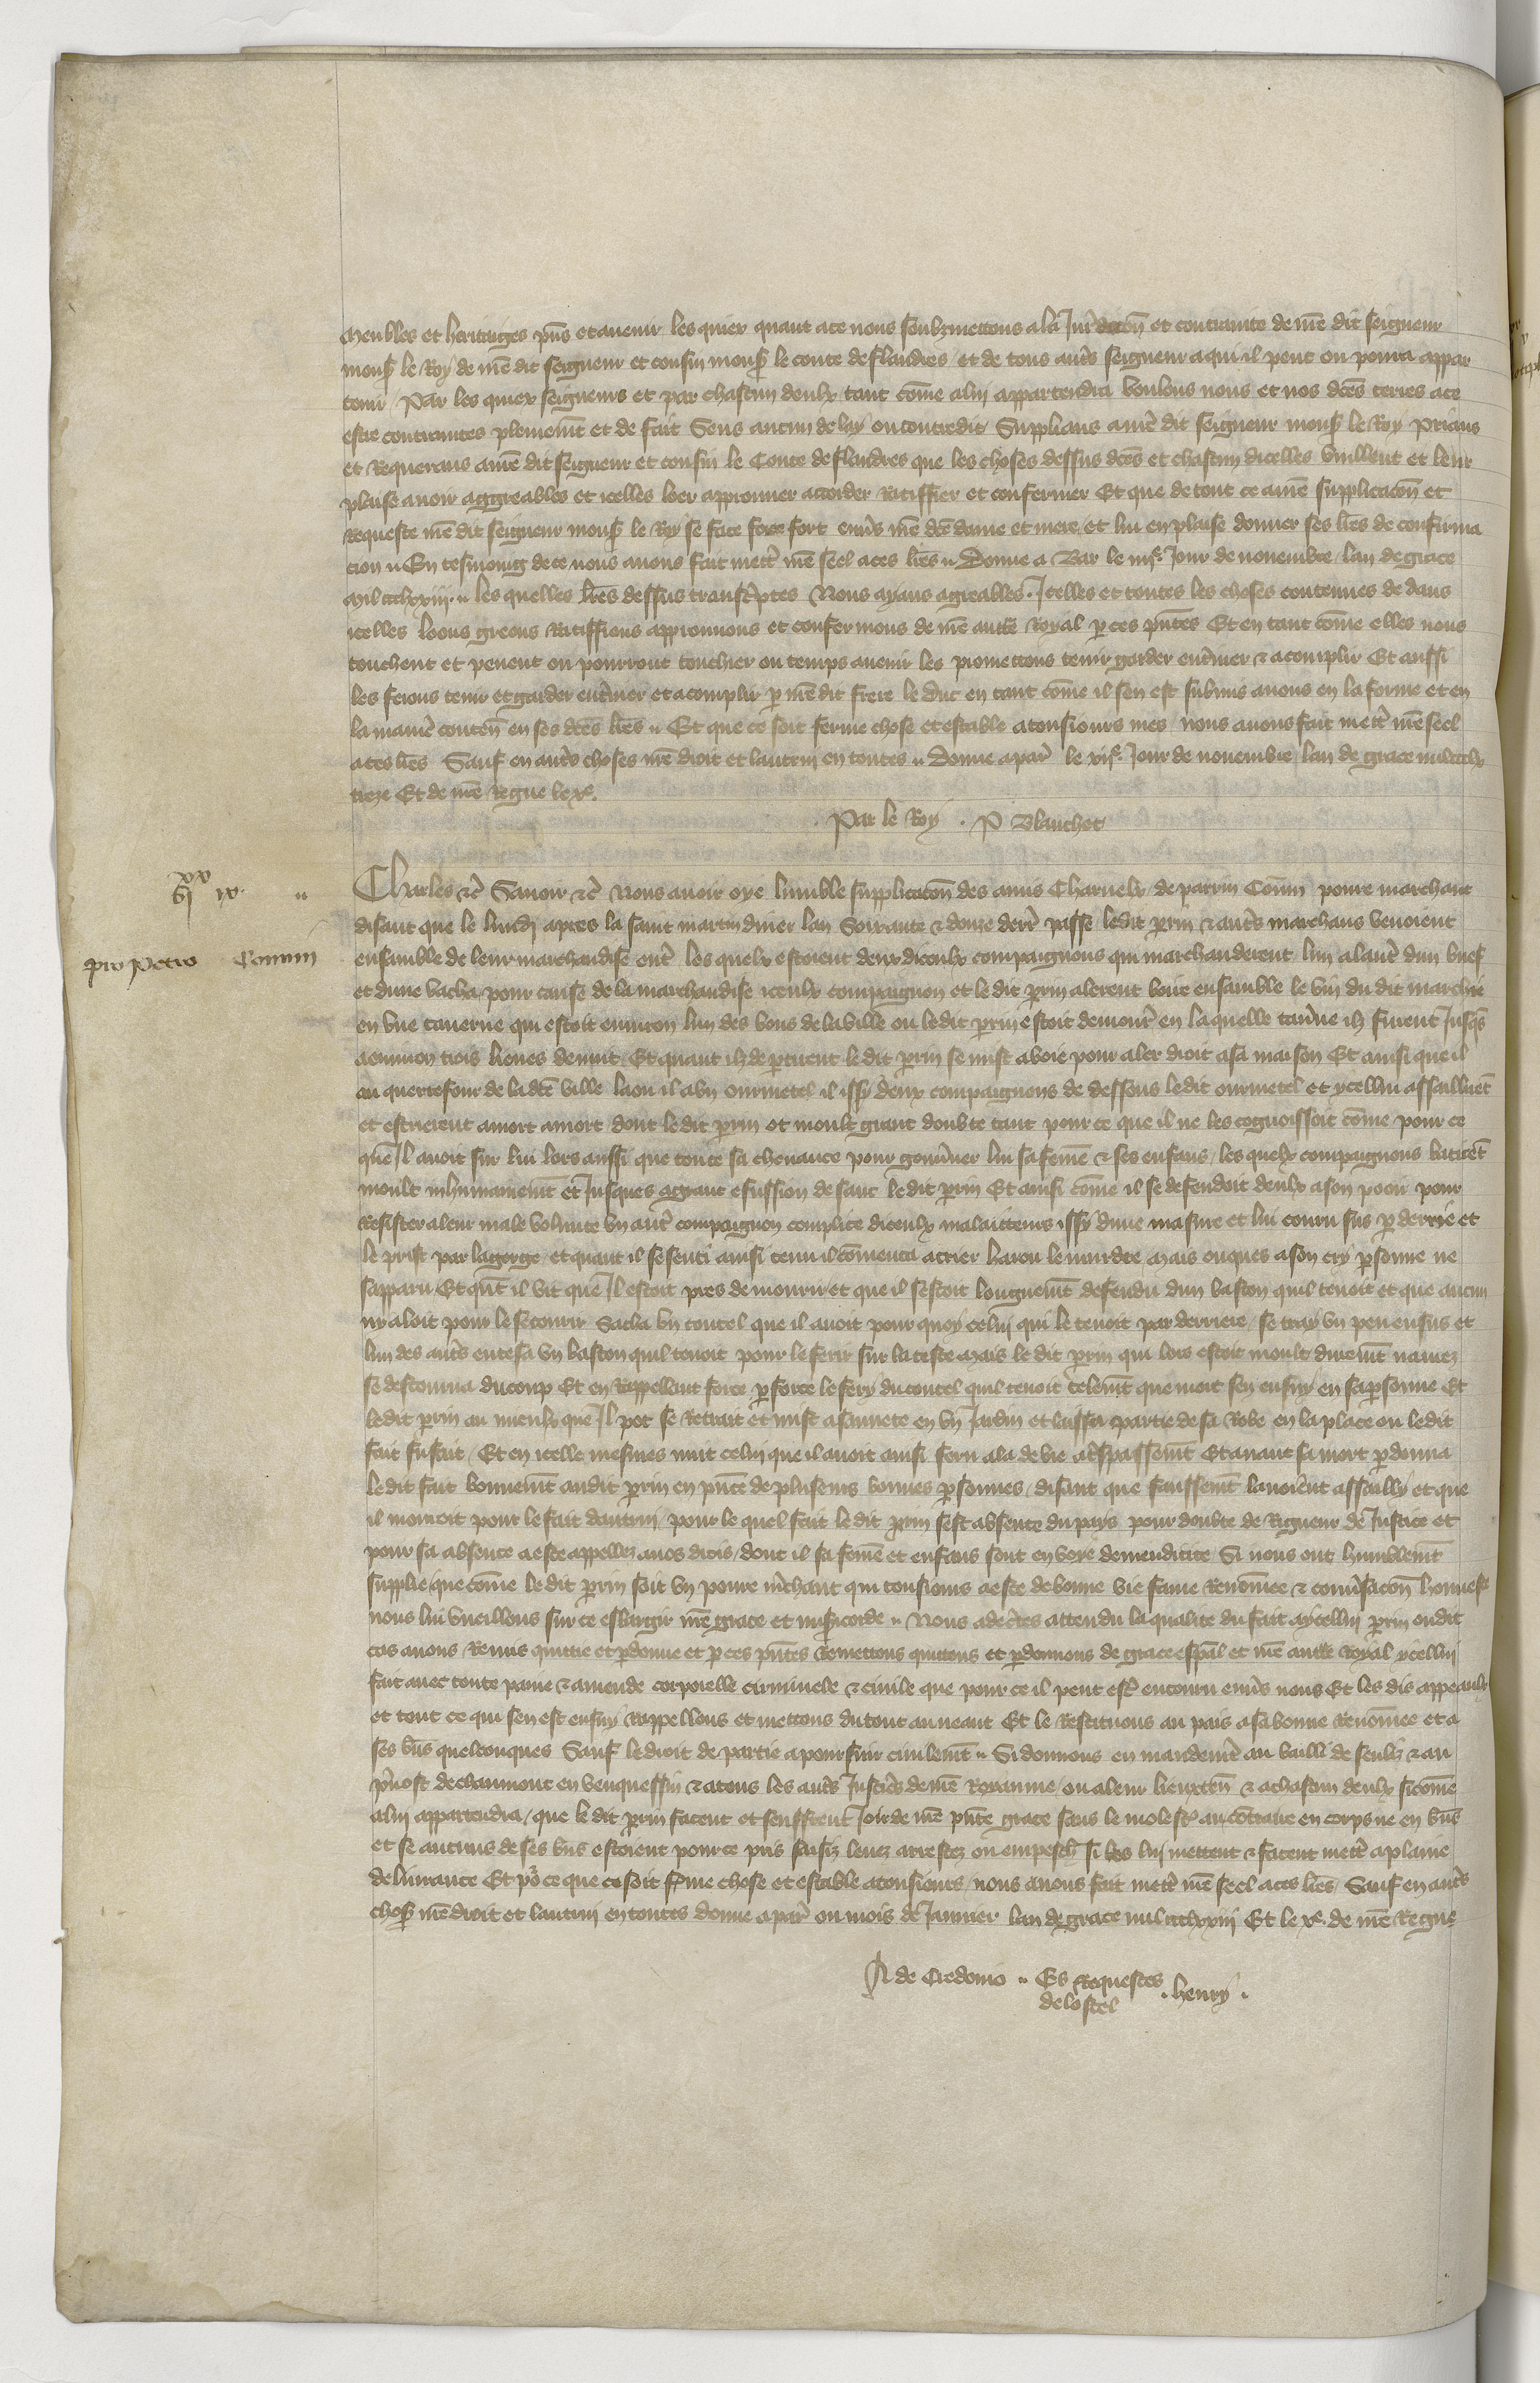 meubles et heritaiges pñs et avenir les quiex quant a ce nous soubzmettons a la Juridicõn et contrainte de nr̃e dit seigneur
mons̃ le Roy de nr̃e dit seigneur et cousin mons̃ le conte de flandres / et de tous aut̃s seigneur a qui il peut ou pourra appar
tenir / Par les quiex seigneurs et par chascun deulx tant cõme a luy appartendra voulons nous et nos dc̃es terres a ce
estre contraintes plenemẽt et de fait Sens aucun delay ou contredit Supplians a nr̃e dit seigneur mons̃ le Roy Prians
et Requerans a nr̃e dit seigneur et cousin le Conte de flandres que les choses dessus dc̃es et chascun dicelles vuillent et leur
plaise avoir aggreables et icelles loer approuver accorder Ratiffier et confermer Et que de tout ce a nr̃e supplicacõn et
Requeste nr̃e dit seigneur mons̃ le Roy se face fort env̾s nr̃e dc̃e dame et mere / et lui en plaise donner ses lr̃es de confirma
cion " En tesmoing de ce nous avons fait mett̾ nr̃e seel a ces lr̃es " Donne a Bar le iiiȷe Jour de novembre / lan de grace
mil ccclxxiiȷ " les quelles lr̃es dessus transc̾ptes Nous ayans agreables Jcelles et toutes les choses contenues de dans
icelles loons greons Ratiffions approuvons et confermons de nr̃e auct̃e Royal p ces pñtes Et en tant cõme elles nous
touchent et pevent ou pourront touchier ou temps avenir les promettons tenir garder ent̾iner & acomplir Et aussi
les ferons tenir et garder ent̾iner et acomplir p nr̃e dit frere le Duc en tant cõme il sen est submis avons en la forme et en
la manie̾ conten̾ en ses dc̃es lr̃es " Et que ce soit ferme chose et estable a tousiours mes nous avons fait mett̾ nr̃e seel
a ces lr̃es Sauf en aut̾s choses nr̃e droit et lautruy en toutes " Donne a par̾ le xiȷe Jour de novembre lan de grace mil ccclx
treze Et de nr̃e Regne le xe.
Par le Roy . P Blanchet
vixx ix. "
pro Petro Conuin
Charles &c̃ Savoir &c̃ Nous avoir oye lumble supplicacõn des amis Charnelx de perrin Conin povre marchant
disant que le lundj apres la saint martin diver lan Soixante & douze derr̾ passe ledit prin & aut̾s marchans venoient
ensamble de leur marchandise ent̾ les quelx estoient deux diceulx compaignons qui marchanderent lun a laut̾ dun buef
et dune vache / pour cause de la marchandise iceulx compaignon et le dit prin alerent boire ensamble le vin du dit marchie
en une taverne qui estoit environ lun des bous de la ville ou ledit prin estoit demour̾ en la quelle tav̾ne ilz furent Jusq̾s
a environ trois heures denuit Et quant ilz de partirent ledit prin se mist a voie pour aler droit a sa maison Et ainsi que il
au querrefour de la dc̃e ville la ou il a un ourmetel il issy deux compaignons de dessous ledit ourmetel et ycellui assaillirẽt
et escrierent a mort a mort dont ledit prin ot moult grant doubte tant pour ce que il ne les cognoissoit cõme pour ce
que Jl avoit sur lui lors aussi que toute sa chevance pour gouv̾ner lui sa fem̃e & ses enfans / les quelx compaignons batirẽt
moult inhumainemẽt et Jusques a grant effusion de sanc ledit prin Et ainsi cõme il se defendoit deulx a son pooir pour
Resister a leur male volunte un aut̾ compaignon complice diceulx malfaitteurs issy dune masure et lui couru sus p derr̾e et
le prist par la gorge / et quant il se senti ainsi tenu il cõmenca a crier harou le murdre mais onques a son cry psonne ne
sapparu / Et qñt il vit que Jl estoit pres de mourir et que il sestoit longuemẽt defendu dun baston quil tenoit et que aucun
ny aloit pour le secourir Sacha un coutel que il avoit pour quoy celuj qui le tenoit par derriere / se tray un peu ensus et
lun des aut̾s entesa un baston quil tenoit pour le ferir sur la teste mais le dit prin qui lors estoit moult durem̃t navrez
se destourna du coup Et en Rappellant force p force le fery du coutel quil tenoit telem̃t que mort sen ensuy en sa psonne Et
ledit prin au mieulx que Jl pot se Retrait et mist a sauvete en un Jardin et laissa partie de sa Robe en la place ou le dit
fait fu fait / Et en icelle mesmes nuit celui que il avoit ainsi feru ala de vie a tr̾spassem̃t Et avant sa mort pdonna
le dit fait bonnem̃t audit prin en pñce de pluseurs bonnes psonnes / disant que faussem̃t lavoient assailly et que
il mouroit pour le fait dautruj / pour le quel fait le dit prin sest absente du pays pour doubte de Rigueur de Justice et
pour sa absence a este appellez a nos drois / dont il sa fem̃e et enfans sont en voye de mendicite Si nous ont humblem̃t
supplie que cõme ledit prin soit un povre m̾chant qui tousiours a este de bonne vie fame Renõmee & conv̾sacõn honnest̾
nous lui vueillons sur ce eslargir nr̃e grace et miẽicorde " Nous adec̾tes attendu la qualite du fait a ycelluj prin oudit
cas avons Remis quittie et pdonne et p ces pñtes Remettons quittons et pdonnons de grace esp̾al et nr̃e auct̃e Royal ycelluj
fait avec toute paine & amende corporelle criminele & civile que pour ce il peut est̾ encouru env̾s nous Et les dis appeaulx
et tout ce qui sen est ensuy Rappellons et mettons du tout au neant Et le Restituons au pais a sa bonne Renõmee et a
ses biẽs quelconques Sauf le droit de partie a poursuir civilem̃t " Si donnons en mandem̃t au bailli de Senliz & au
p̾vost de chaumont en venquessin & a tous les aut̾s Justic̾es de nr̃e Royaume / ou a leur lieuxten̾ & a chascun deulx sicõme
a luj appartendra / que le dit prin facent et seuffrent Joir de nr̃e pñte grace sans le molest̾ au cõtraire en corps ne en biẽs
et se aucuns de ses biẽs estoient pour ce pris saisiz levez arrestez ou empesch̾ si les luj mettent & facent mett̾ a plaine
delivrance Et po̾ ce que ce soit f̾me chose et estable a tousiours / nous avons fait mett̾ nr̃e seel a ces lr̃es / Sauf en aut̾s
chos̾ nr̃e droit et lautruj en toutes donne a par̾ ou mois de Janvier lan de grace mil ccclxxiij Et le xe. de nr̃e Regne
N de Credonio " Es Requestes de lostel . henry .